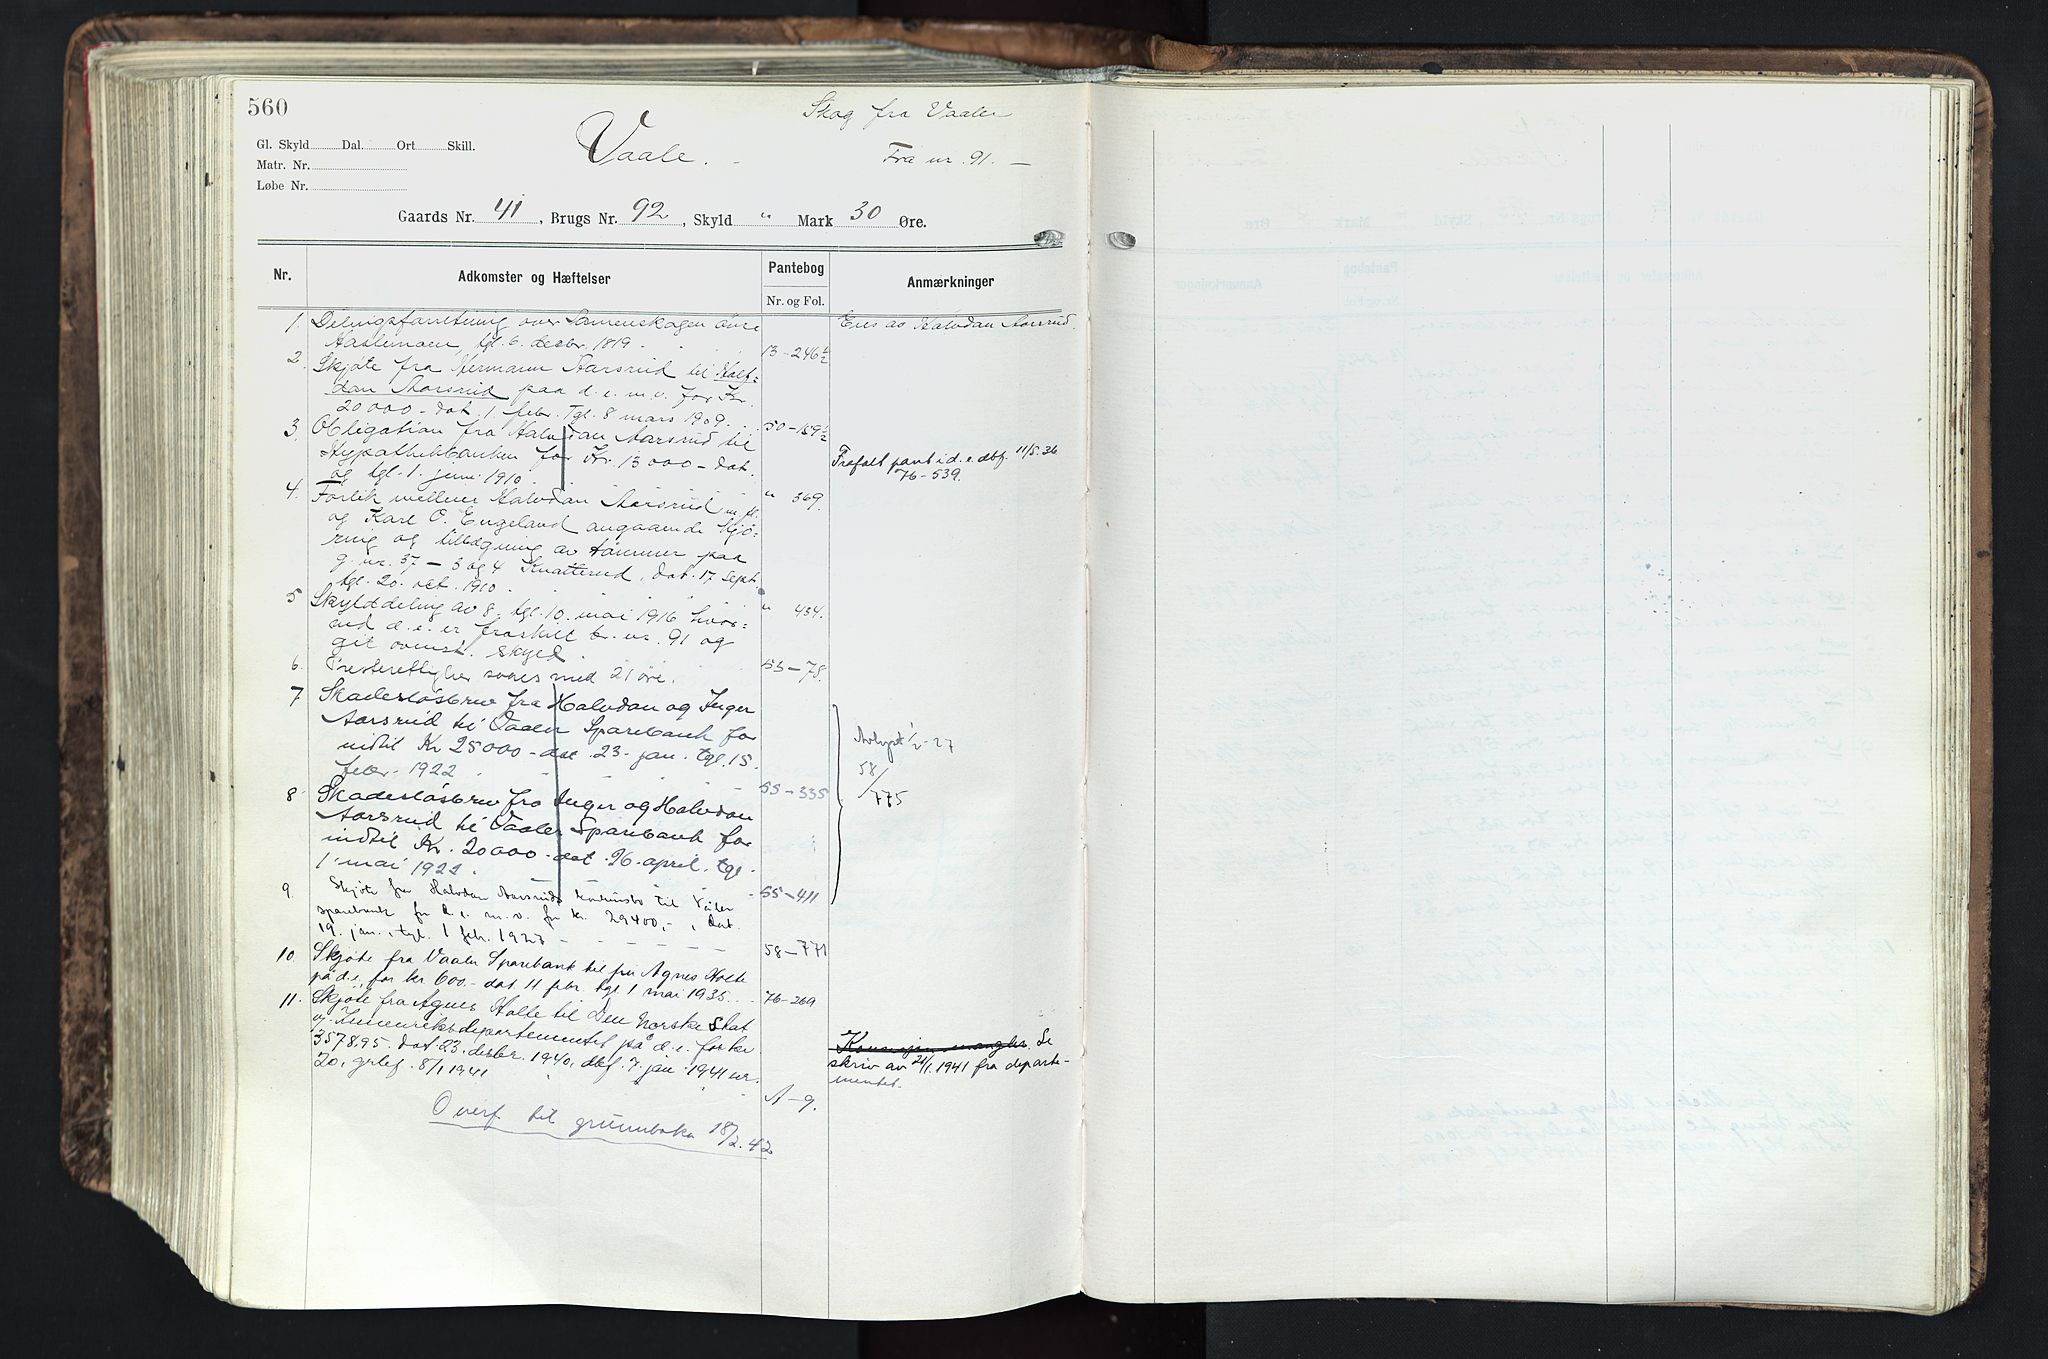 560
Skog fra Vaaler
Gl. Skyld Dal. Ort Skill.
Vaale.
Fra nr. 91. —
Matr. Nr.
Løbe Nr.
Gaards Nr. 41, Brugs Nr. 92, Skyld " Mark 30 Øre.
Nr.
Adkomster og Hæftelser
Pantebog
Nr. og Fol.
Anmærkninger
1. Delingsforretning over Sameskogen øvre
Haslemoen, tgl. 6. decbr. 1819. 13-246½
Eies av Halvdan Aarsrud.
2. Skjøte fra Hermann Aarsrud til Half=
dan Aarsrud paa d. e. m. v. for Kr.
20000- dat. 1 febr. Tgl. 8 mars 1909. 50-159½
3. Obligation fra Halvdan Aarsrud til
Hypothekbanken for Kr. 13000- dat.
og tgl. 1. juni 1910. " 369.
Frafalt pant i d. e. dbf. 11/5. 36
76-539.
4. Forlik mellem Halvdan Aarsrud m. fl.
og Karl O. Engeland angaaende kjø-
ring og tillægning av tømmer paa
g. nr. 37 — 3 og 4 Knatterud, dat. 17 sept.
tgl. 20. okt. 1910. " 434.
5 Skylddeling av 8, tgl. 10. mai 1916 hvor=
ved d. e. er fraskilt br. nr. 91 og
git ovenst. skyld. 53-78.
6. Presterettigher svares med 21 øre.
7 Skadesløsbrev fra Halvdan og Inger
Aarsrud til Vaaler Sparebank for
indtil Kr 25000- dat. 23. jan. tgl. 15.
febr. 1922 55-335
Avlyst 1/2-27
58/775
8 Skadesløsbrev fra Inger og Halvdan
Aarsrud til Vaaler Sparebank for
indtil Kr. 20000- dat. 26. april. tgl.
1 mai 1922 55-411
9 Skjøte fra Halvdan Aarsruds konkursbo til Våler
sparebank for d. e. m. v. for kr. 29400,-, dat.
19. jan., tgl. 1 febr. 1927 58-771
10. Skjøte fra Vaaler Sparebank til fru Agnes Holte
på d. e., for kr 600.- dat 11 febr. tgl 1 mai 1935. 76-269
11. Skjøte fra Agnes Holte til Den Norske Stat
v. Innenriksdepartementet på d. e. for kr.
3578.95. dat. 23. desbr. 1940, dbf. 7. jan. 1941 nr.
20, grlef. 8/1 1941 A-9.
Konsesjon mangler. Se
skriv av 21/1. 1941 fra departe-
mentet.
Overf. til grunnboka 18/2. 42